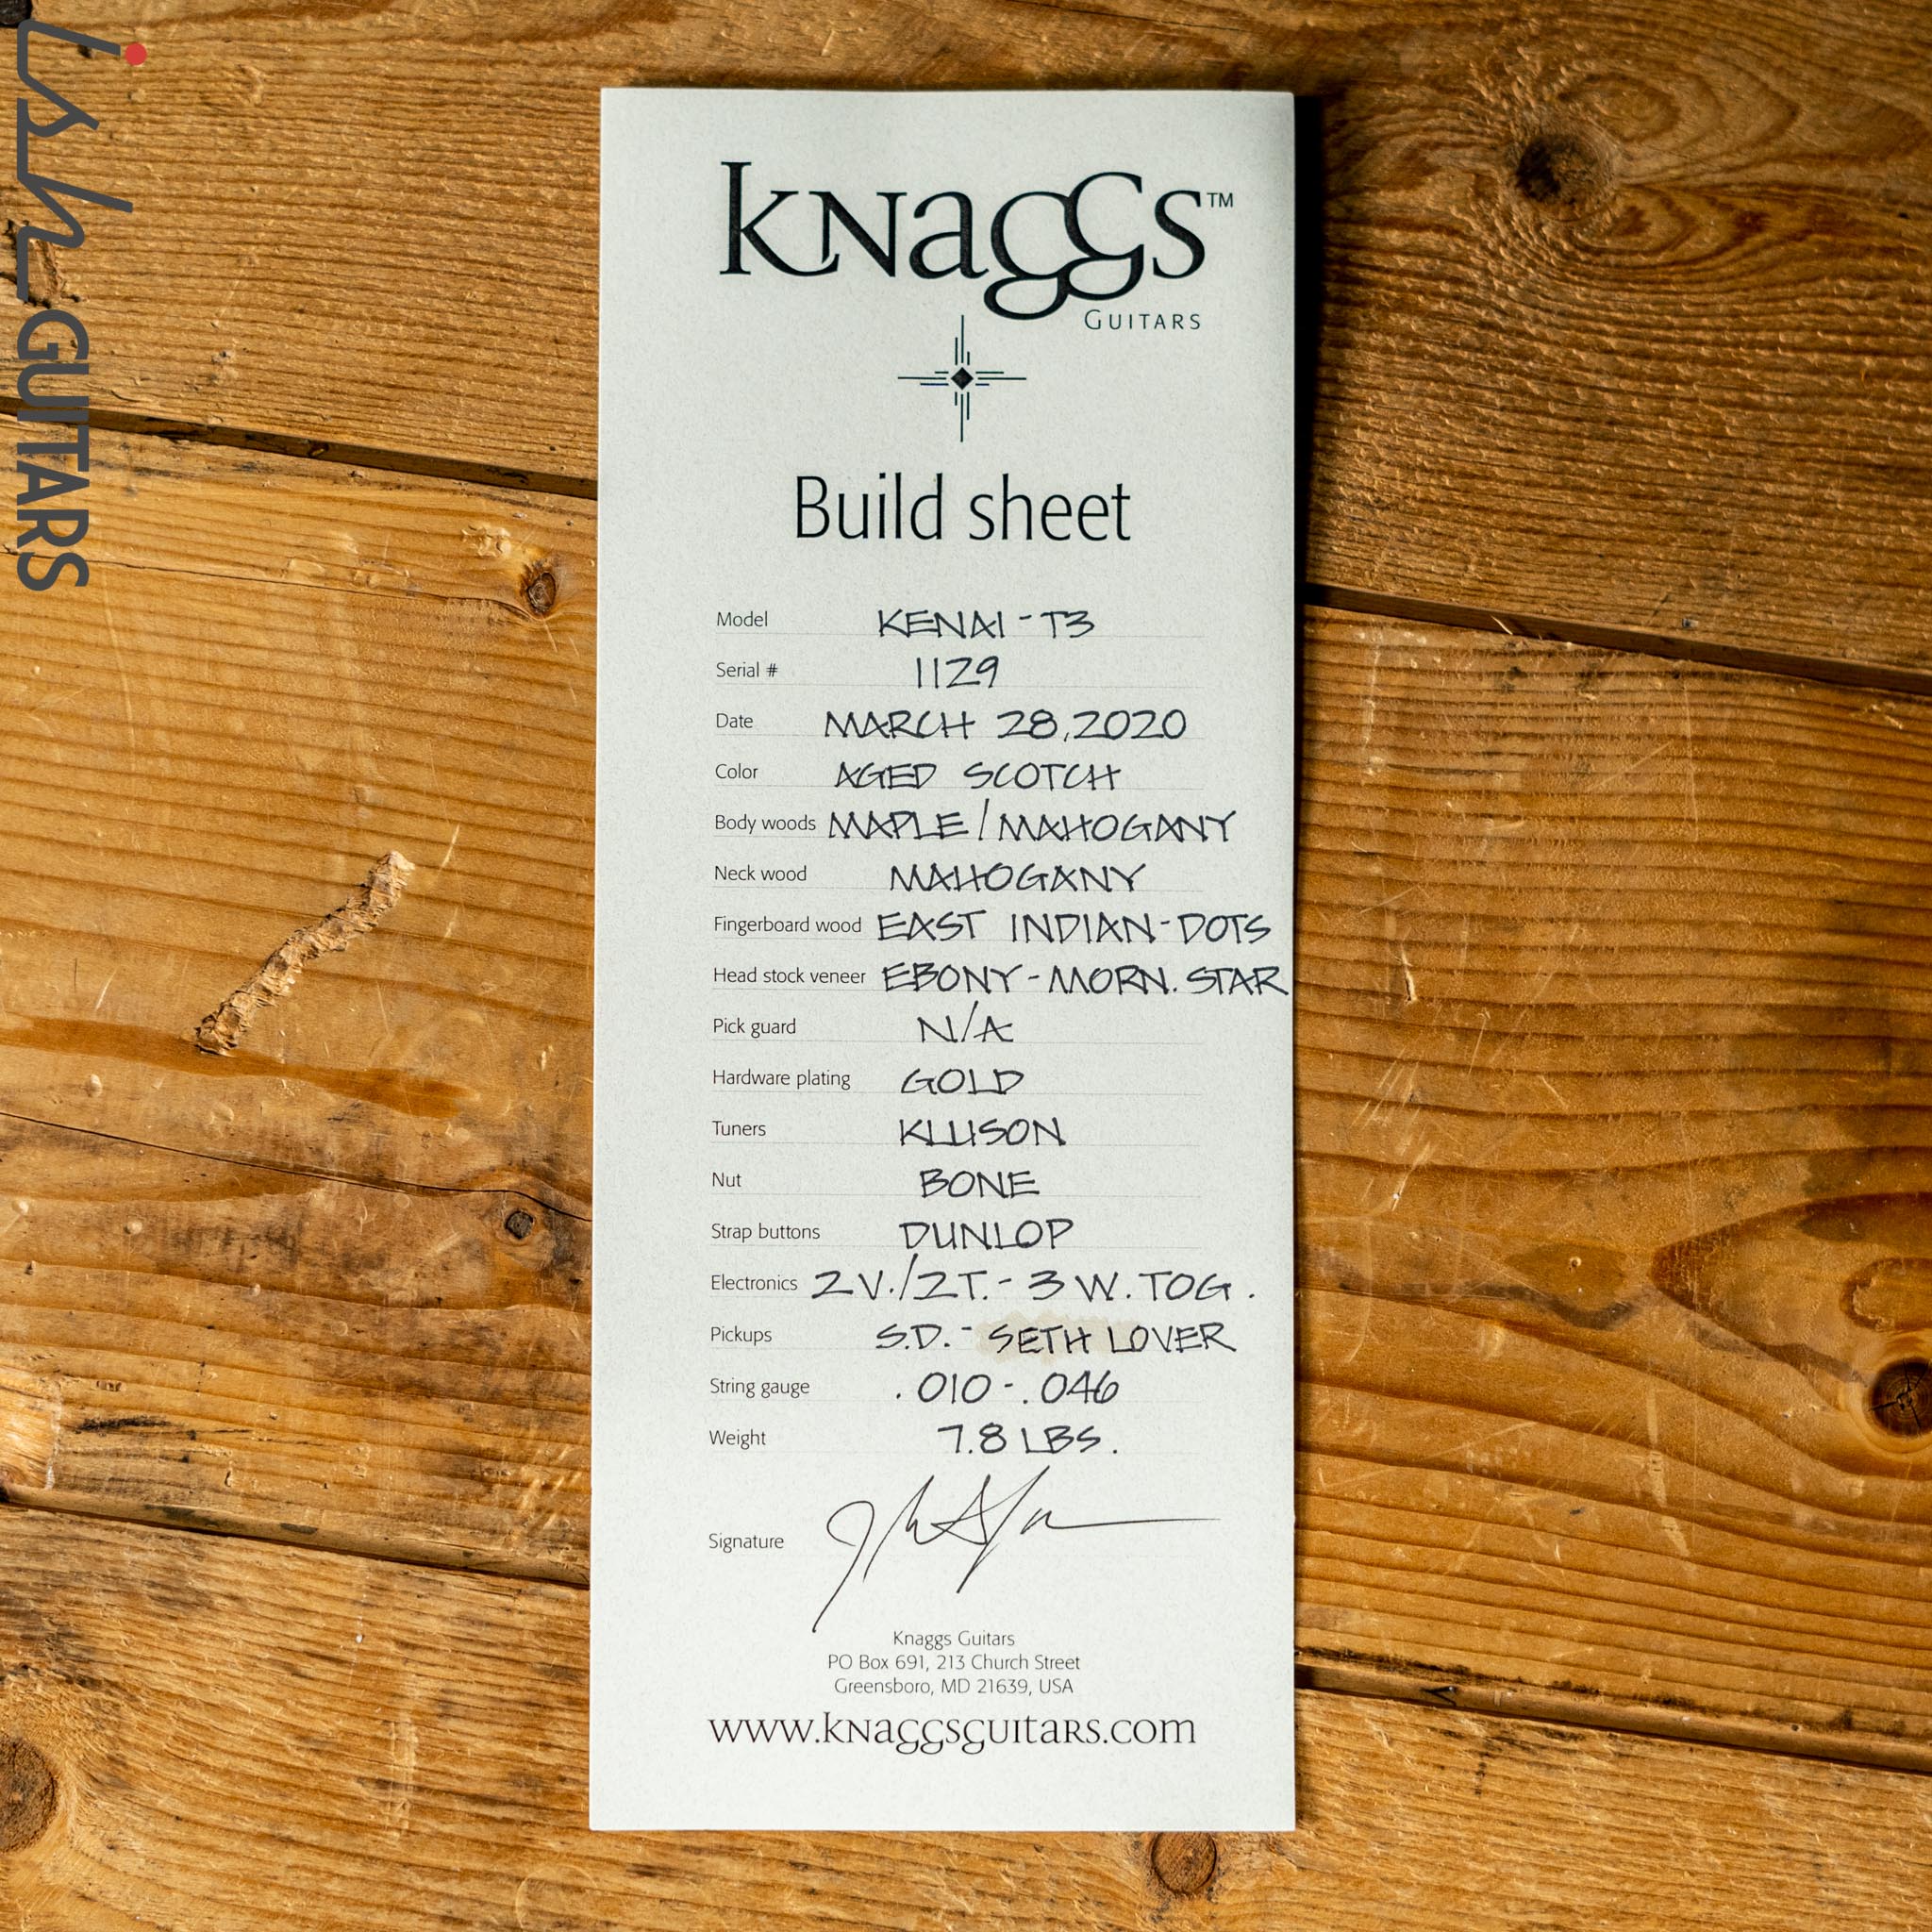 ish GUITARS
Knaggs™
GUITARS
Build sheet
Model KENAI - T3
Serial # 1129
Date MARCH 28, 2020
Color AGED SCOTCH
Body woods MAPLE / MAHOGANY
Neck wood MAHOGANY
Fingerboard wood EAST INDIAN - DOTS
Head stock veneer EBONY - MORN. STAR
Pick guard N/A
Hardware plating GOLD
Tuners KLUSON
Nut BONE
Strap buttons DUNLOP
Electronics 2 V./2T. - 3 W. TOG.
Pickups S.D. - SETH LOVER
String gauge .010 - .046
Weight 7.8 LBS.
Signature
Knaggs Guitars
PO Box 691, 213 Church Street
Greensboro, MD 21639, USA
www.knaggsguitars.com